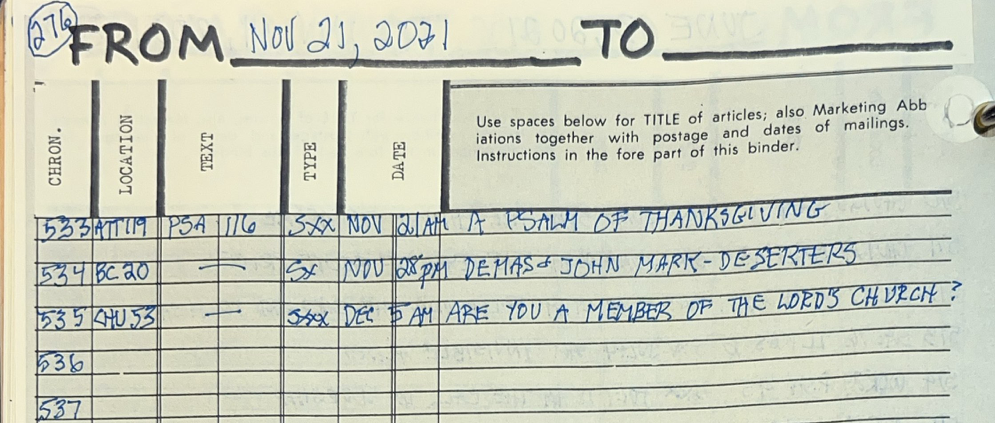 276 FROM NOV 21, 2021 TO
CHRON. LOCATION TEXT TYPE DATE
Use spaces below for TITLE of articles; also Marketing Abb
iations together with postage and dates of mailings.
Instructions in the fore part of this binder.
533 ATT 119 PSA 116 Sxx NOV 21 AM A PSALM OF THANKSGIVING
534 BC 20 — Sx NOV 28 PM DEMAS & JOHN MARK - DESERTERS
535 CHU 53 — Sxx DEC 5 AM ARE YOU A MEMBER OF THE LORD'S CHURCH?
536
537